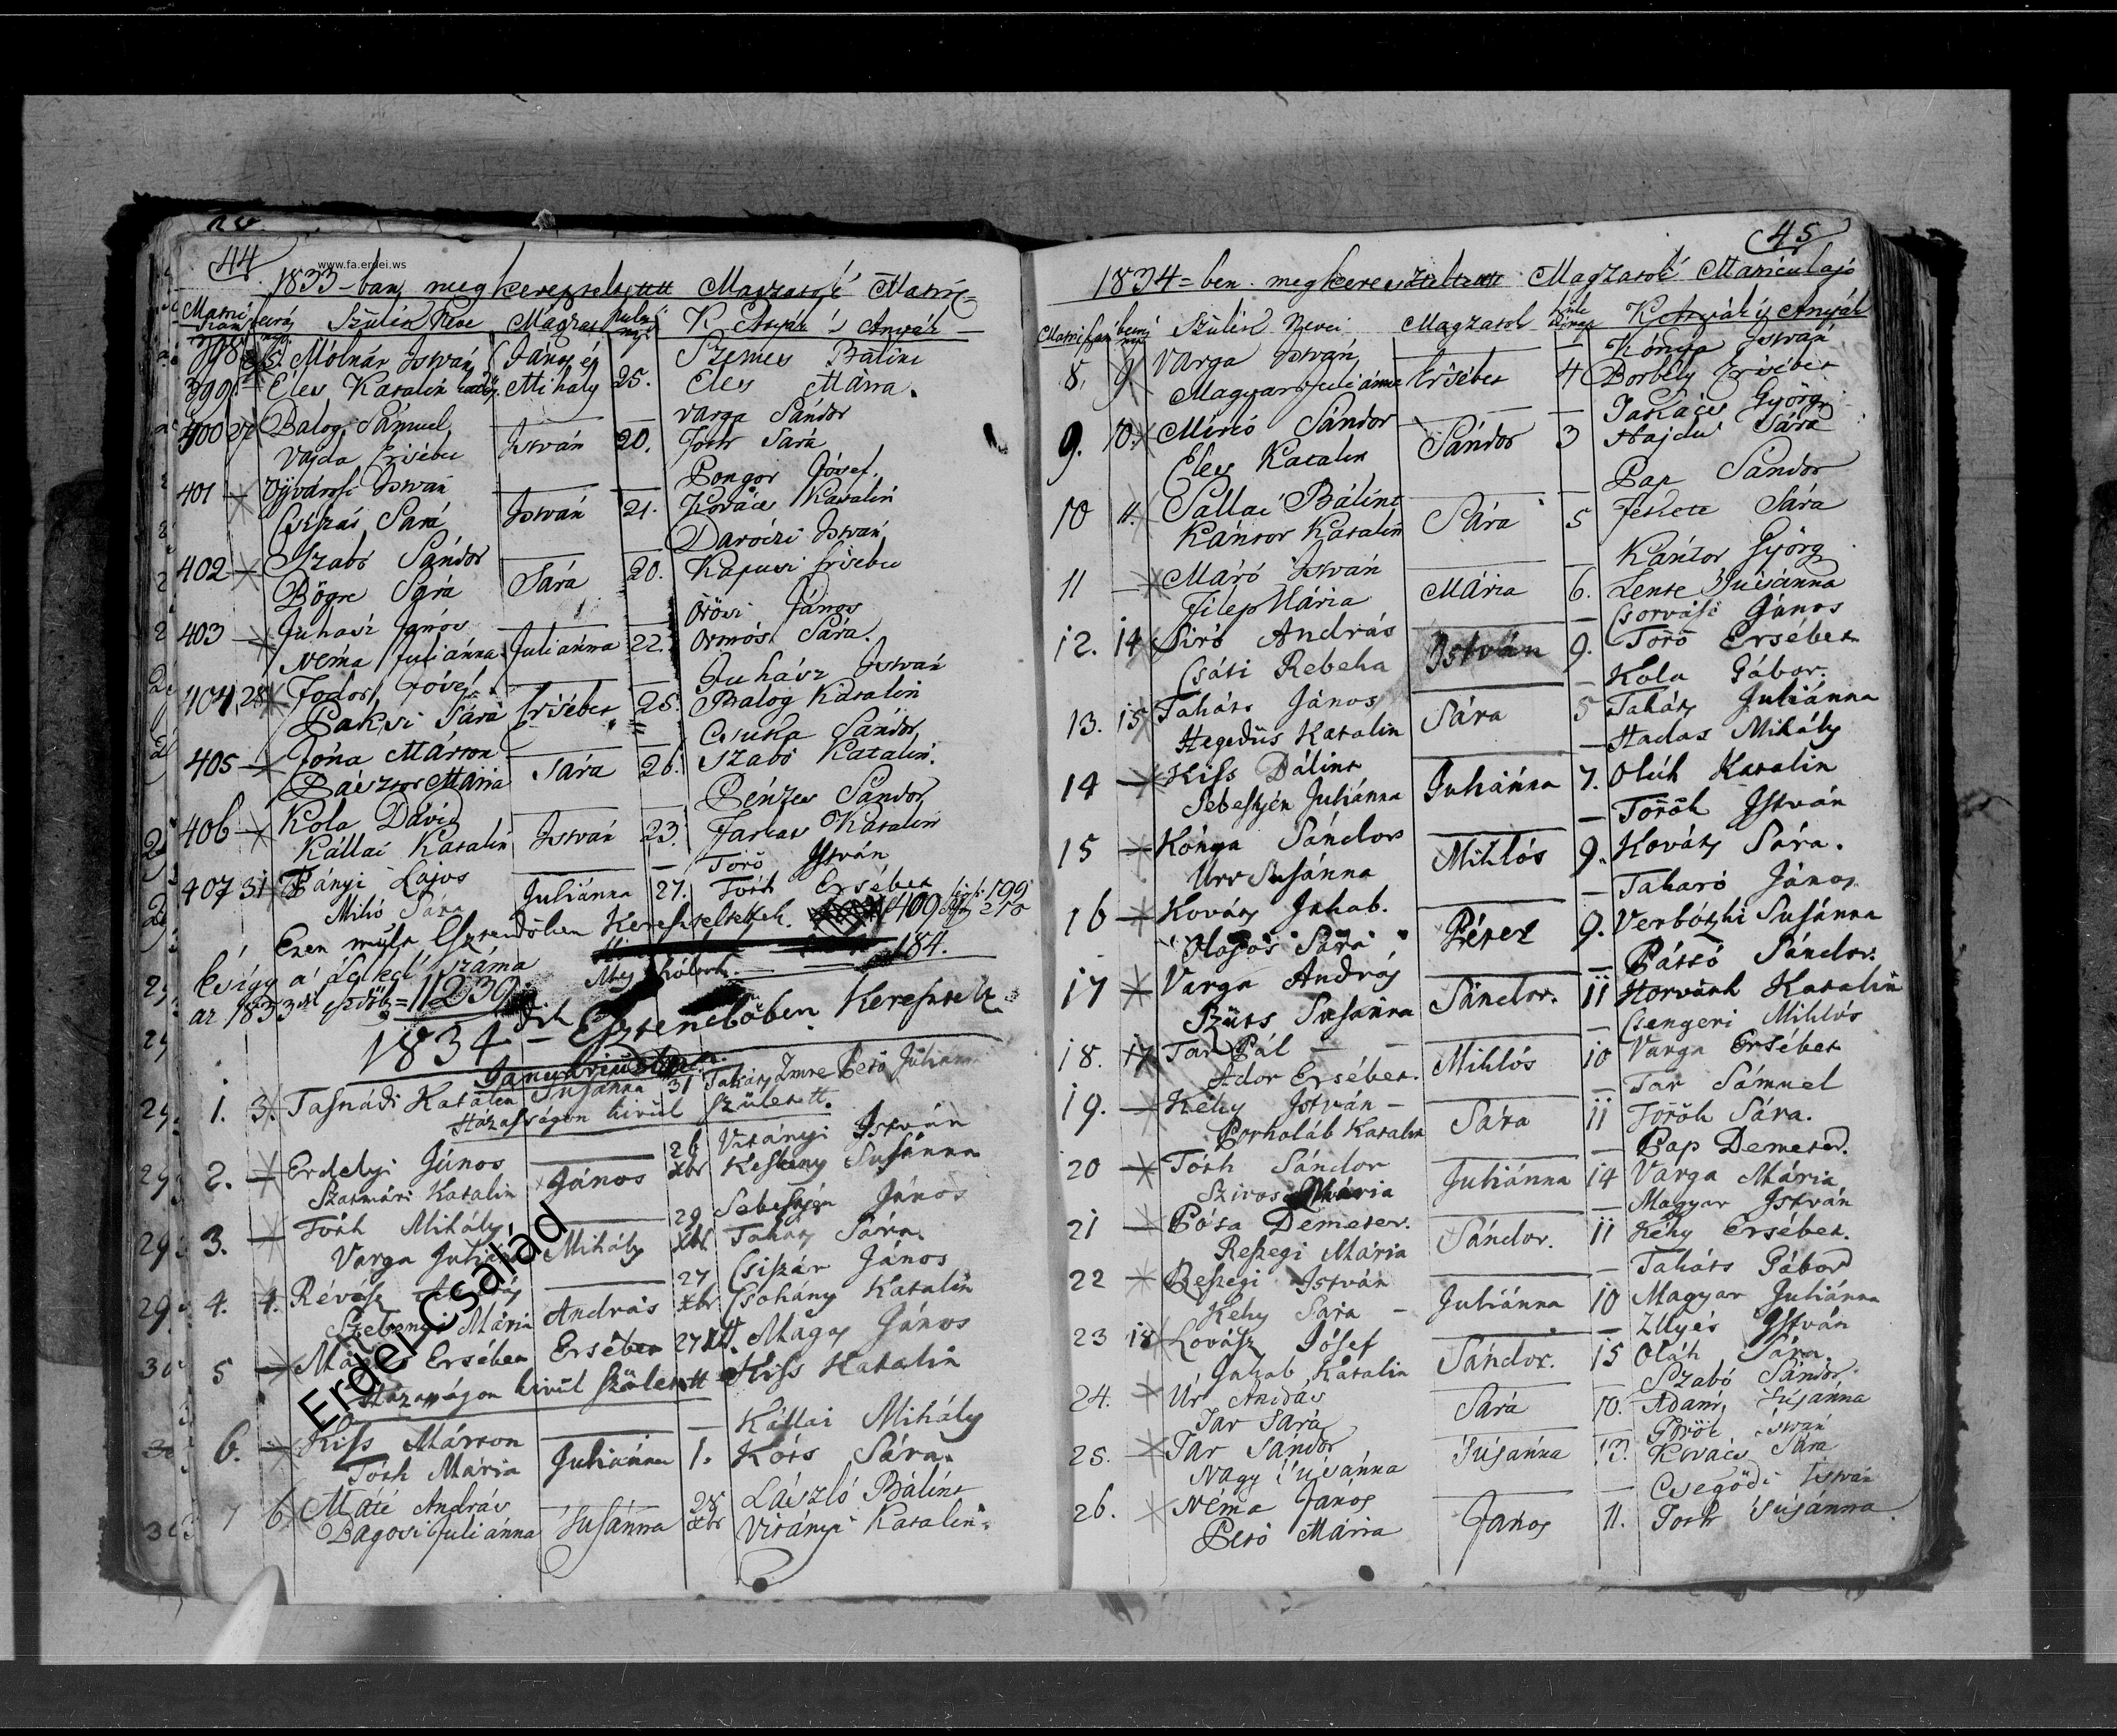 44
www.fa.erdei.ws
1833-ban megkereszteltettt Magzatok Matric=
Szülék Neve Magzat K Atyák 's Anyák
398 Molnár István János és Szemes Bálint
399 Eles Katalin Mihály 25. Eles Mária.
400 27 Balog Sámuel Varga Sándor
Vajda Ersébet István 20. Toth Sara
401 Ujvárosi István Pongor Jósef.
Csiszár Sará István 21. Kovács Katalin
402 Szabó Sándor Daróczi István
Bögre Sára Sára 20. Kapusi Ersébet
403 Juhasz János Örösi János
Néma Juliánna Juliánna 22. Ormós Sára.
404 28 Fodor Jósef Juhász István
Paksi Sára Ersébet 25. Balog Katalin
405 Jóna Márton Csuka Sándor
Pásztor Mária Sára 26. Szabó Katalin.
406 Kola Dávid Pénzes Sándor
Kállai Katalin István 23. Farkas Katalin
407 31 Bányi Lajos Törő István
Mikó Sára Juliánna 27. Tóth Ersébet
Ezen mult Esztendőben Kereszteltettek. 409 199
210
184.
És így a' száma
az 1833 = 11230
1834 dik Esztendőben Keresztelt
Januárius
1. 3. Tasnádi Katalin Susánna 31 Takáts Imre Pető Juliánna
Házasságon kivűl született.
2. Erdelyi János 26 Vitányi István
Szatmári Katalin János Xbr Keskeny Susánna
3. Tóth Mihály 29 Sebestyén János
Varga Juliánna Mihály Xbr Takáts Sára
4. 4. Révész András 27 Csiszár János
Mária András Xbr Csohány Katalin
5 Ersébet Ersébet 27 Magos János
Házasságon kivűl született Kiss Katalin
Erdei Család
6. Kiss Márton Kállai Mihály
Tóth Mária Juliánna 1. Kóts Sára.
7 6 Máté András 28 László Bálint
Bagosi Juliánna Susánna Xbr Vitányi Katalin.
45
1834=ben megkereszteltettt Magzatok Matriculájo
Szülék Nevei Magzatok K Atyák és Anyák
8. 9 Varga István Kónya István
Magyar Juliánna Ersébet 4 Borbély Ersébet
9. 10. Mikó Sándor Takács György
Eles Katalin Sándor 3 Hajdu Sára
10 11. Sallai Bálint Pap Sandor
Kántor Katalin Sára 5 Fekete Sára
11 Máró István Kántor György
Filep Mária Mária 6. Lente Susánna
12. 14 Siró András Csorvási János
Csáti Rebeka István 9. Törő Ersébet
13. 15 Takáts János Kola Gábor.
Hegedüs Katalin Sára 5 Takáts Juliánna
14 Kiss Bálint Hadas Mihály
Sebestyén Juliánna Juliánna 7. Oláh Katalin
15 Kónya Sándor Török István
Urr Susánna Miklós 9. Kováts Sára.
16 Kováts Jakab. Takaró János
Hajós Sára Péter 9. Verbótzki Susánna
17 Varga András Pátró Sándor.
Szüts Susánna Sándor. 11 Horváth Katalin
18. 17 Tar Pál Csengeri Miklós
Ador Ersébet. Miklós 10 Varga Ersébet
19. Kéky István Tar Sámuel
Porkoláb Katalin Sára 11 Török Sára.
20 Tóth Sándor Pap Demeter.
Szivos Mária Juliánna 14 Varga Mária
21 Pósa Demeter. Magyar István
Reszegi Mária Sándor. 11 Kéky Ersébet.
22 Reszegi István Takáts Gábor
Kéky Sára Juliánna 10 Magyar Juliánna
23 18 Lovász Jósef Illyés István
Jakab Katalin Sándor. 15 Oláh Sára.
24. Úr András Szabó Sándor
Tar Sará Sará 10. Adami Susánna
25. Tar Sándor Török István
Nagy Susánna Susánna 13. Kovács Sára
26. Néma János Csegödi István
Pető Mária János 11. Toth Susánna